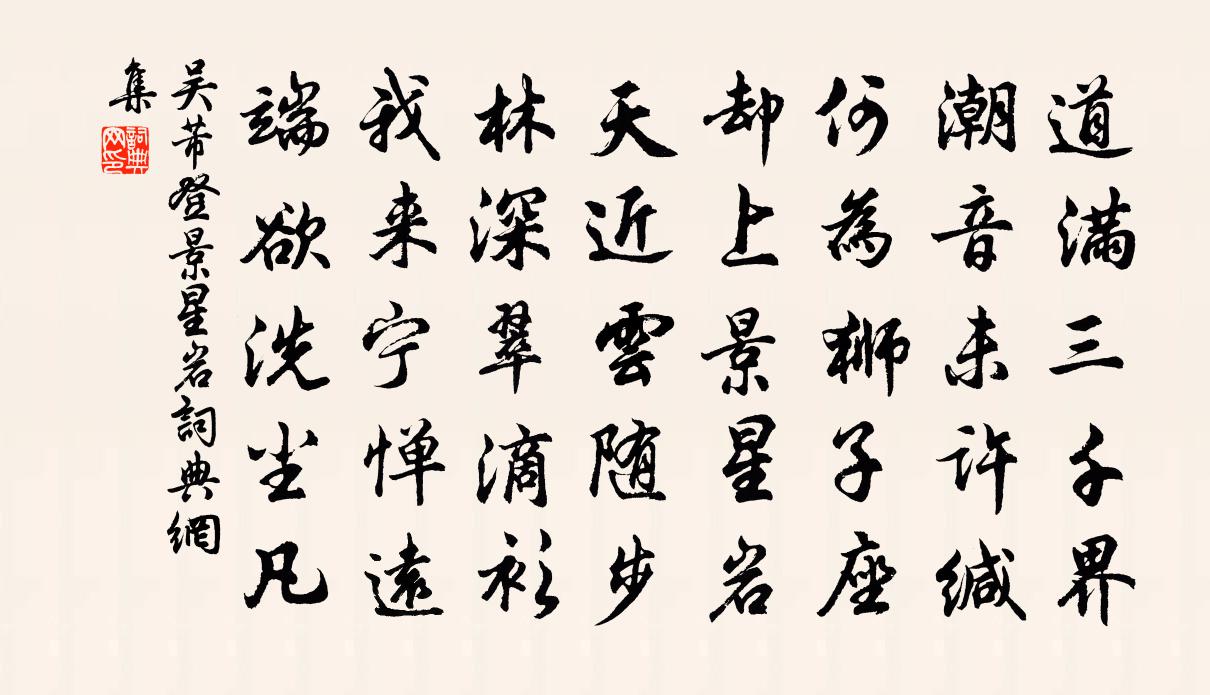 道满三千界
潮音未许缄
何為狮子座
却上景星岩
天近雲随步
林深翠滴衫
我来宁惮遠
端欲洗尘凡
吴芾登景星岩詞典網
集
詞典网印